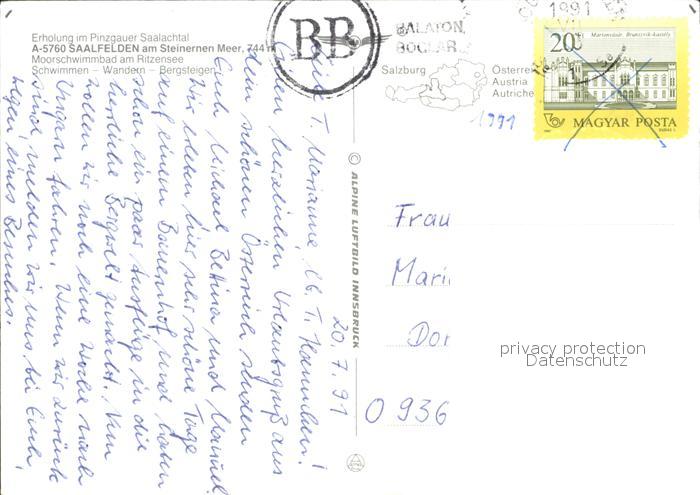 Erholung im Pinzgauer Saalachtal
A-5760 SAALFELDEN am Steinernen Meer, 744 m
Moorschwimmbad am Ritzensee
Schwimmen – Wandern – Bergsteigen
BB
BALATON,
BOGLÁR
Salzburg
Österrei
Austria
Autriche
1991
20
Martonvásár, Brunszvik-kastély
MAGYAR POSTA
1991
© ALPINE LUFTBILD INNSBRUCK
20.7.91
T. Marianne, lb. T. Hannchen!
herzlichen Urlaubsgruß aus
dem schönen Österreich senden
Euch Michael Bettina und Manuel.
Wir erleben hier sehr schöne Tage
auf einem Bauernhof und haben
schon ein paar Ausflüge in die
herrliche Bergwelt gemacht. Nun
wollen wir noch eine Woche nach
Ungarn fahren. Wenn wir zurück
sind melden wir uns bei Euch,
wegen eines Besuches.
Frau
Mari
Dor
O 936
privacy protection
Datenschutz